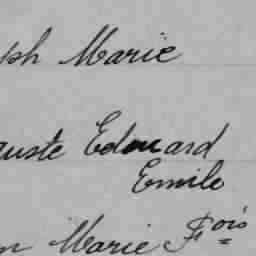 ph Marie
uste Edouard
Emile
n Marie Fois